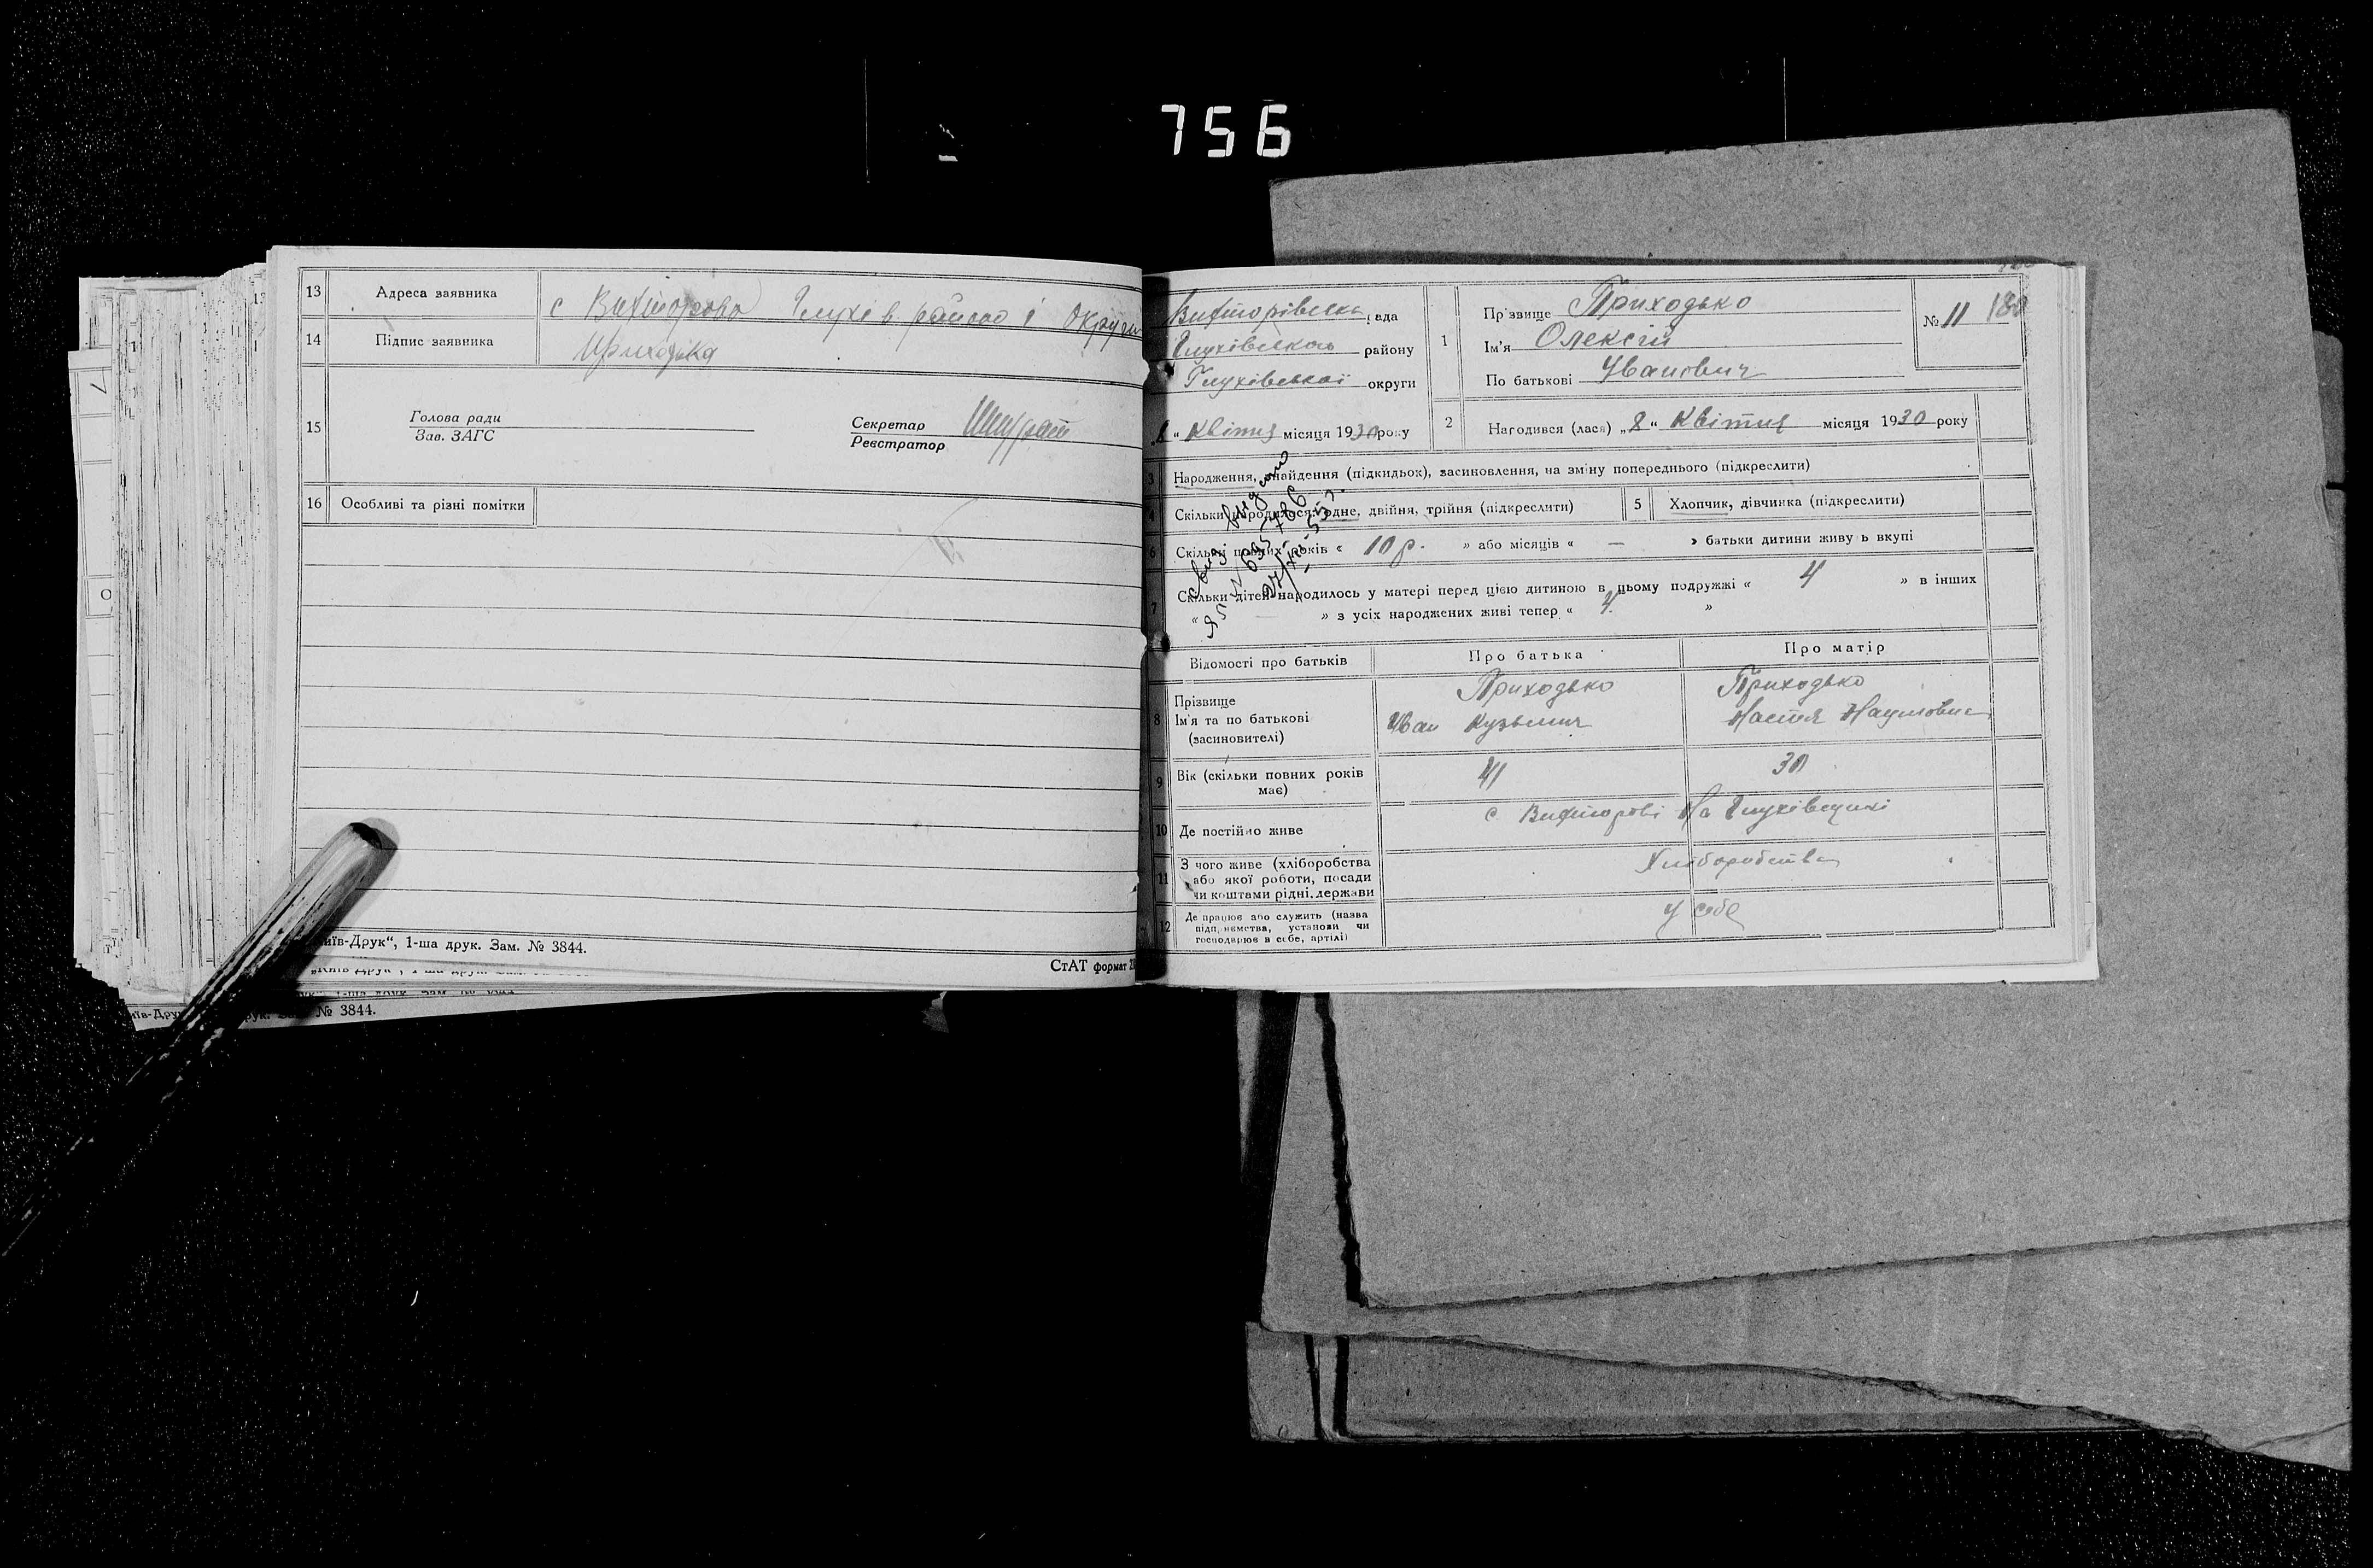 756
13 Адреса заявника с Вікторово Глухів району і Округи
14 Підпис заявника Приходька
15 Голова ради Секретар
Зав. ЗАГС Реєстратор
16 Особливі та різні помітки
иїв-Друк“, 1-ша друк. Зам. № 3844.
СтАТ формат
№ 3844.
Вікторівська рада
Глухівського району
Глухівської округи
" Квітня місяця 1930 року
1 Прізвище Приходько
Ім'я Олексій
По батькові Иванович
№ 11 180
2 Народився (лася) „8“ Квітня місяця 1930 року
3 Народження, знайдення (підкидьок), засиновлення, на зміну попереднього (підкреслити)
4 Скільки народилося: одне, двійня, трійня (підкреслити) 5 Хлопчик, дівчинка (підкреслити)
6 Скільки повних років « 10 р. » або місяців « — » батьки дитини живуть вкупі
7 Скільки дітей народилось у матері перед цією дитиною в цьому подружжі « 4 » в інших
« — » з усіх народжених живі тепер « 4 »
Відомості про батьків Про батька Про матір
8 Прізвище Приходько Приходько
Ім'я та по батькові Иван Кузьмич Настя Наумовна
(засиновителі)
9 Вік (скільки повних років має) 41 30
10 Де постійно живе с. Вікторові На Глухівщині
11 З чого живе (хліборобства Хліборобства
або якої роботи, посади
чи коштами рідні, держави
12 Де працює або служить (назва у себе
підприємства, установи чи
господарює в себе, артілі)